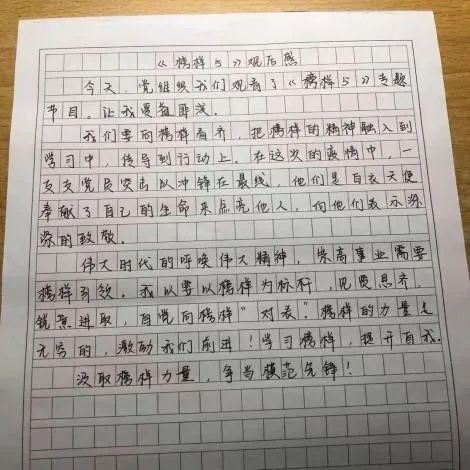 《榜样5》观后感
今天，党组织我们观看了《榜样5》专题
节目。让我受益匪浅。
我们要向榜样看齐，把榜样的精神融入到
学习中，传导到行动上。在这次的疫情中，一
支支党员突击队冲锋在最线，他们是白衣天使
奉献了自己的生命来点亮他人，向他们表示深
深的致敬。
伟大时代的呼唤伟大精神，崇高事业需要
榜样引领。我以要以榜样为标杆，见贤思齐，
锐意进取，自觉向榜样"对表"榜样的力量是
无穷的，激励我们前进！学习榜样，提升自我.
汲取榜样力量，争当模范先锋！